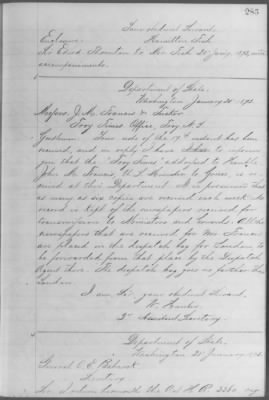 285
Your obedient Servant,
Enclosure. Hamilton Fish
Sir Edwd Thornton to Mr. Fish 20 Jany. 1872, with
accompaniments.
Department of State,
Washington January 20th 187
Messrs. J. M. Francis &
Troy Times Office, Troy N.Y.
Gentlemen: Your note of the 17th instant has been
received, and in reply I have to inform
you that the "Troy Times" addressed to Honble
John M. Francis U.S. Minister to Greece, is re-
ceived at this Department. It is presumed that
as many as six copies are received each week. No
record is kept of the newspapers received for
transmission to Ministers and Consuls. All the
newspapers that are received for Mr. Francis
are placed in the despatch bag for London to
be forwarded from that place by the Despatch
Agent there. The despatch bag goes no farther than
London.
I am, Sir, your obedient Servant,
W. Hunter
2d Assistant Secretary.
Department of State,
Washington 20 January 187
General O. E. Babcock
Secretary
Sir: I return herewith the Act H.R.